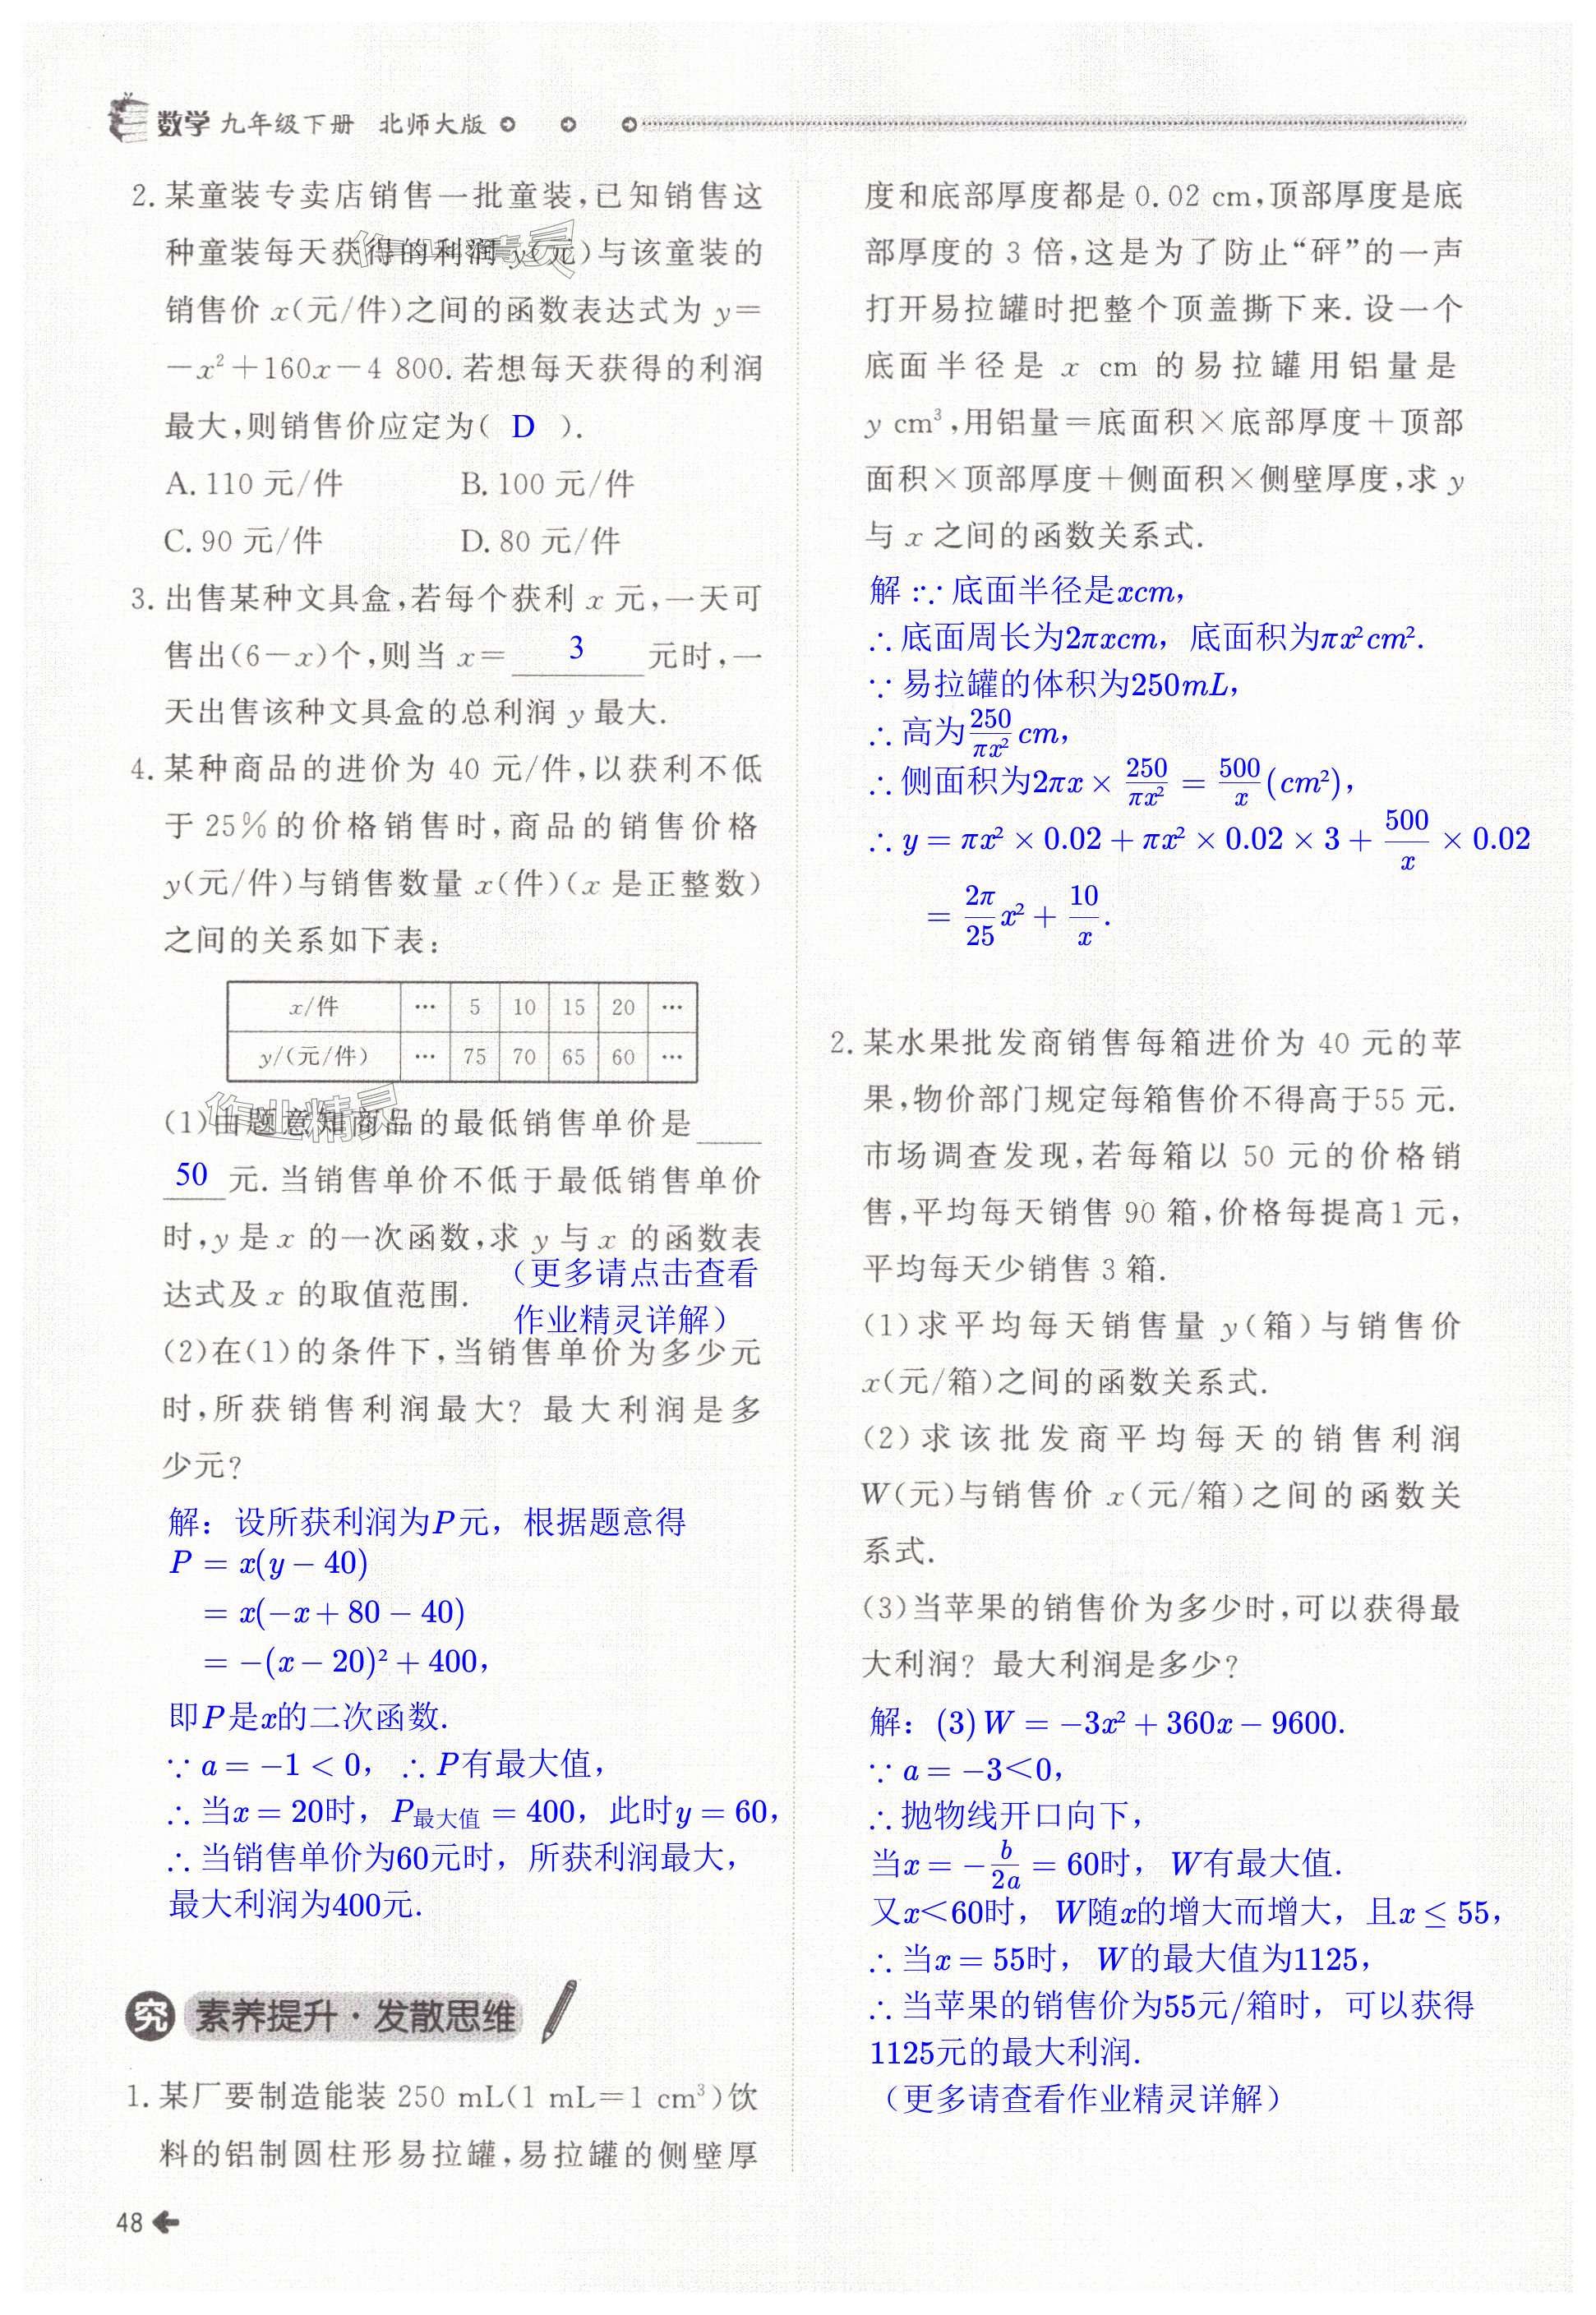 数学 九年级下册 北师大版
2. 某童装专卖店销售一批童装,已知销售这
种童装每天获得的利润 y(元)与该童装的
销售价 x(元/件)之间的函数表达式为 y=
-x²+160x-4 800. 若想每天获得的利润
最大,则销售价应定为( D ).
A. 110 元/件 B. 100 元/件
C. 90 元/件 D. 80 元/件
3. 出售某种文具盒,若每个获利 x 元,一天可
售出(6-x)个,则当 x= 3 元时,一
天出售该种文具盒的总利润 y 最大.
4. 某种商品的进价为 40 元/件,以获利不低
于 25%的价格销售时,商品的销售价格
y(元/件)与销售数量 x(件)(x 是正整数)
之间的关系如下表:
x/件 … 5 10 15 20 …
y/(元/件) … 75 70 65 60 …
作业精灵
(1)由题意知商品的最低销售单价是____
50 元. 当销售单价不低于最低销售单价
时,y 是 x 的一次函数,求 y 与 x 的函数表
达式及 x 的取值范围.
（更多请点击查看
作业精灵详解）
(2)在(1)的条件下,当销售单价为多少元
时,所获销售利润最大? 最大利润是多
少元?
解：设所获利润为P元，根据题意得
P = x(y − 40)
= x(−x + 80 − 40)
= −(x − 20)² + 400，
即P是x的二次函数.
∵ a = −1 < 0， ∴ P有最大值，
∴ 当x = 20时，P最大值 = 400，此时y = 60，
∴ 当销售单价为60元时，所获利润最大，
最大利润为400元.
究 素养提升·发散思维
1. 某厂要制造能装 250 mL(1 mL=1 cm³)饮
料的铝制圆柱形易拉罐,易拉罐的侧壁厚
48
度和底部厚度都是 0.02 cm,顶部厚度是底
部厚度的 3 倍,这是为了防止“砰”的一声
打开易拉罐时把整个顶盖撕下来. 设一个
底面半径是 x cm 的易拉罐用铝量是
y cm³,用铝量=底面积×底部厚度+顶部
面积×顶部厚度+侧面积×侧壁厚度,求 y
与 x 之间的函数关系式.
解：∵ 底面半径是xcm，
∴ 底面周长为2πxcm，底面积为πx²cm².
∵ 易拉罐的体积为250mL，
∴ 高为250/πx² cm，
∴ 侧面积为2πx × 250/πx² = 500/x (cm²)，
∴ y = πx² × 0.02 + πx² × 0.02 × 3 + 500/x × 0.02
= 2π/25 x² + 10/x.
2. 某水果批发商销售每箱进价为 40 元的苹
果,物价部门规定每箱售价不得高于55 元.
市场调查发现,若每箱以 50 元的价格销
售,平均每天销售 90 箱,价格每提高1 元,
平均每天少销售 3 箱.
(1)求平均每天销售量 y(箱)与销售价
x(元/箱)之间的函数关系式.
(2)求该批发商平均每天的销售利润
W(元)与销售价 x(元/箱)之间的函数关
系式.
(3)当苹果的销售价为多少时,可以获得最
大利润? 最大利润是多少?
解：(3) W = −3x² + 360x − 9600.
∵ a = −3<0，
∴ 抛物线开口向下，
当x = −b/2a = 60时，W有最大值.
又x<60时，W随x的增大而增大，且x ≤ 55，
∴ 当x = 55时，W的最大值为1125，
∴ 当苹果的销售价为55元/箱时，可以获得
1125元的最大利润.
（更多请查看作业精灵详解）